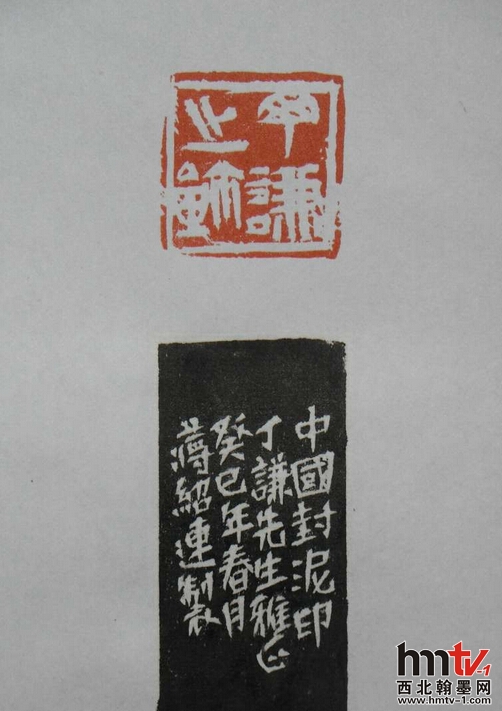 丁謙
之鉨
中國封泥印
丁謙先生雅正
癸巳年春月
蔣紹連製
hmtv-1
西北翰墨网
www.hmtv-1.com